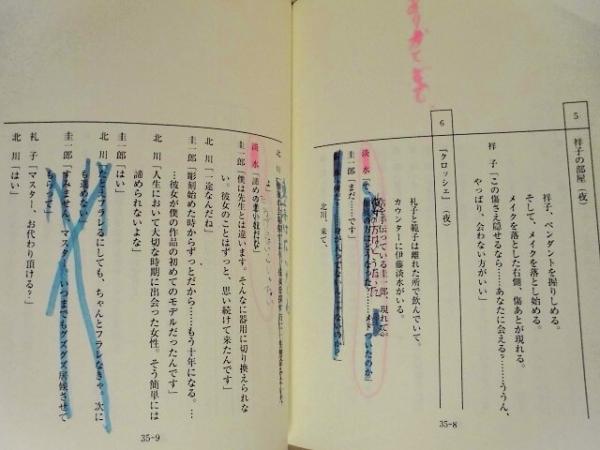 5
祥子の部屋(夜)
祥子、ペンダントを握りしめる。
そして、メイクを落とし始める。
メイクを落とした右側、傷あとが現れる。
祥 子「この傷さえ隠せるなら……あなたに会える?……ううん、
やっぱり、会わない方がいい」
6
『クロッシェ』(夜)
礼子と範子は離れた所で飲んでいて。
カウンターに伊藤淡水がいる。
手伝っている圭一郎、現れて。
淡 水
メドついたのか」
圭一郎「まだ……です」
北川、来て、
35-8
北 川
淡 水「諦めの悪い奴だな」
圭一郎「僕は先生とは違います。そんなに器用に切り換えられな
い。彼女のことはずっと、思い続けて来たんです」
北 川「一途なんだね」
圭一郎「彫刻始めた時からずっとだから……もう十年になる。…
…彼女が僕の作品の初めてのモデルだったんです」
北 川「人生において大切な時期に出会った女性。そう簡単には
諦められないよな」
圭一郎「はい」
北 川「ただ…フラレるにしても、ちゃんとフラレなきゃ。次に
も進めない」
圭一郎「すみません、マスター。いつまでもグズグズ居候させて
もらって」
北 川「はい」
礼 子「マスター、お代わり頂ける?」
35-9